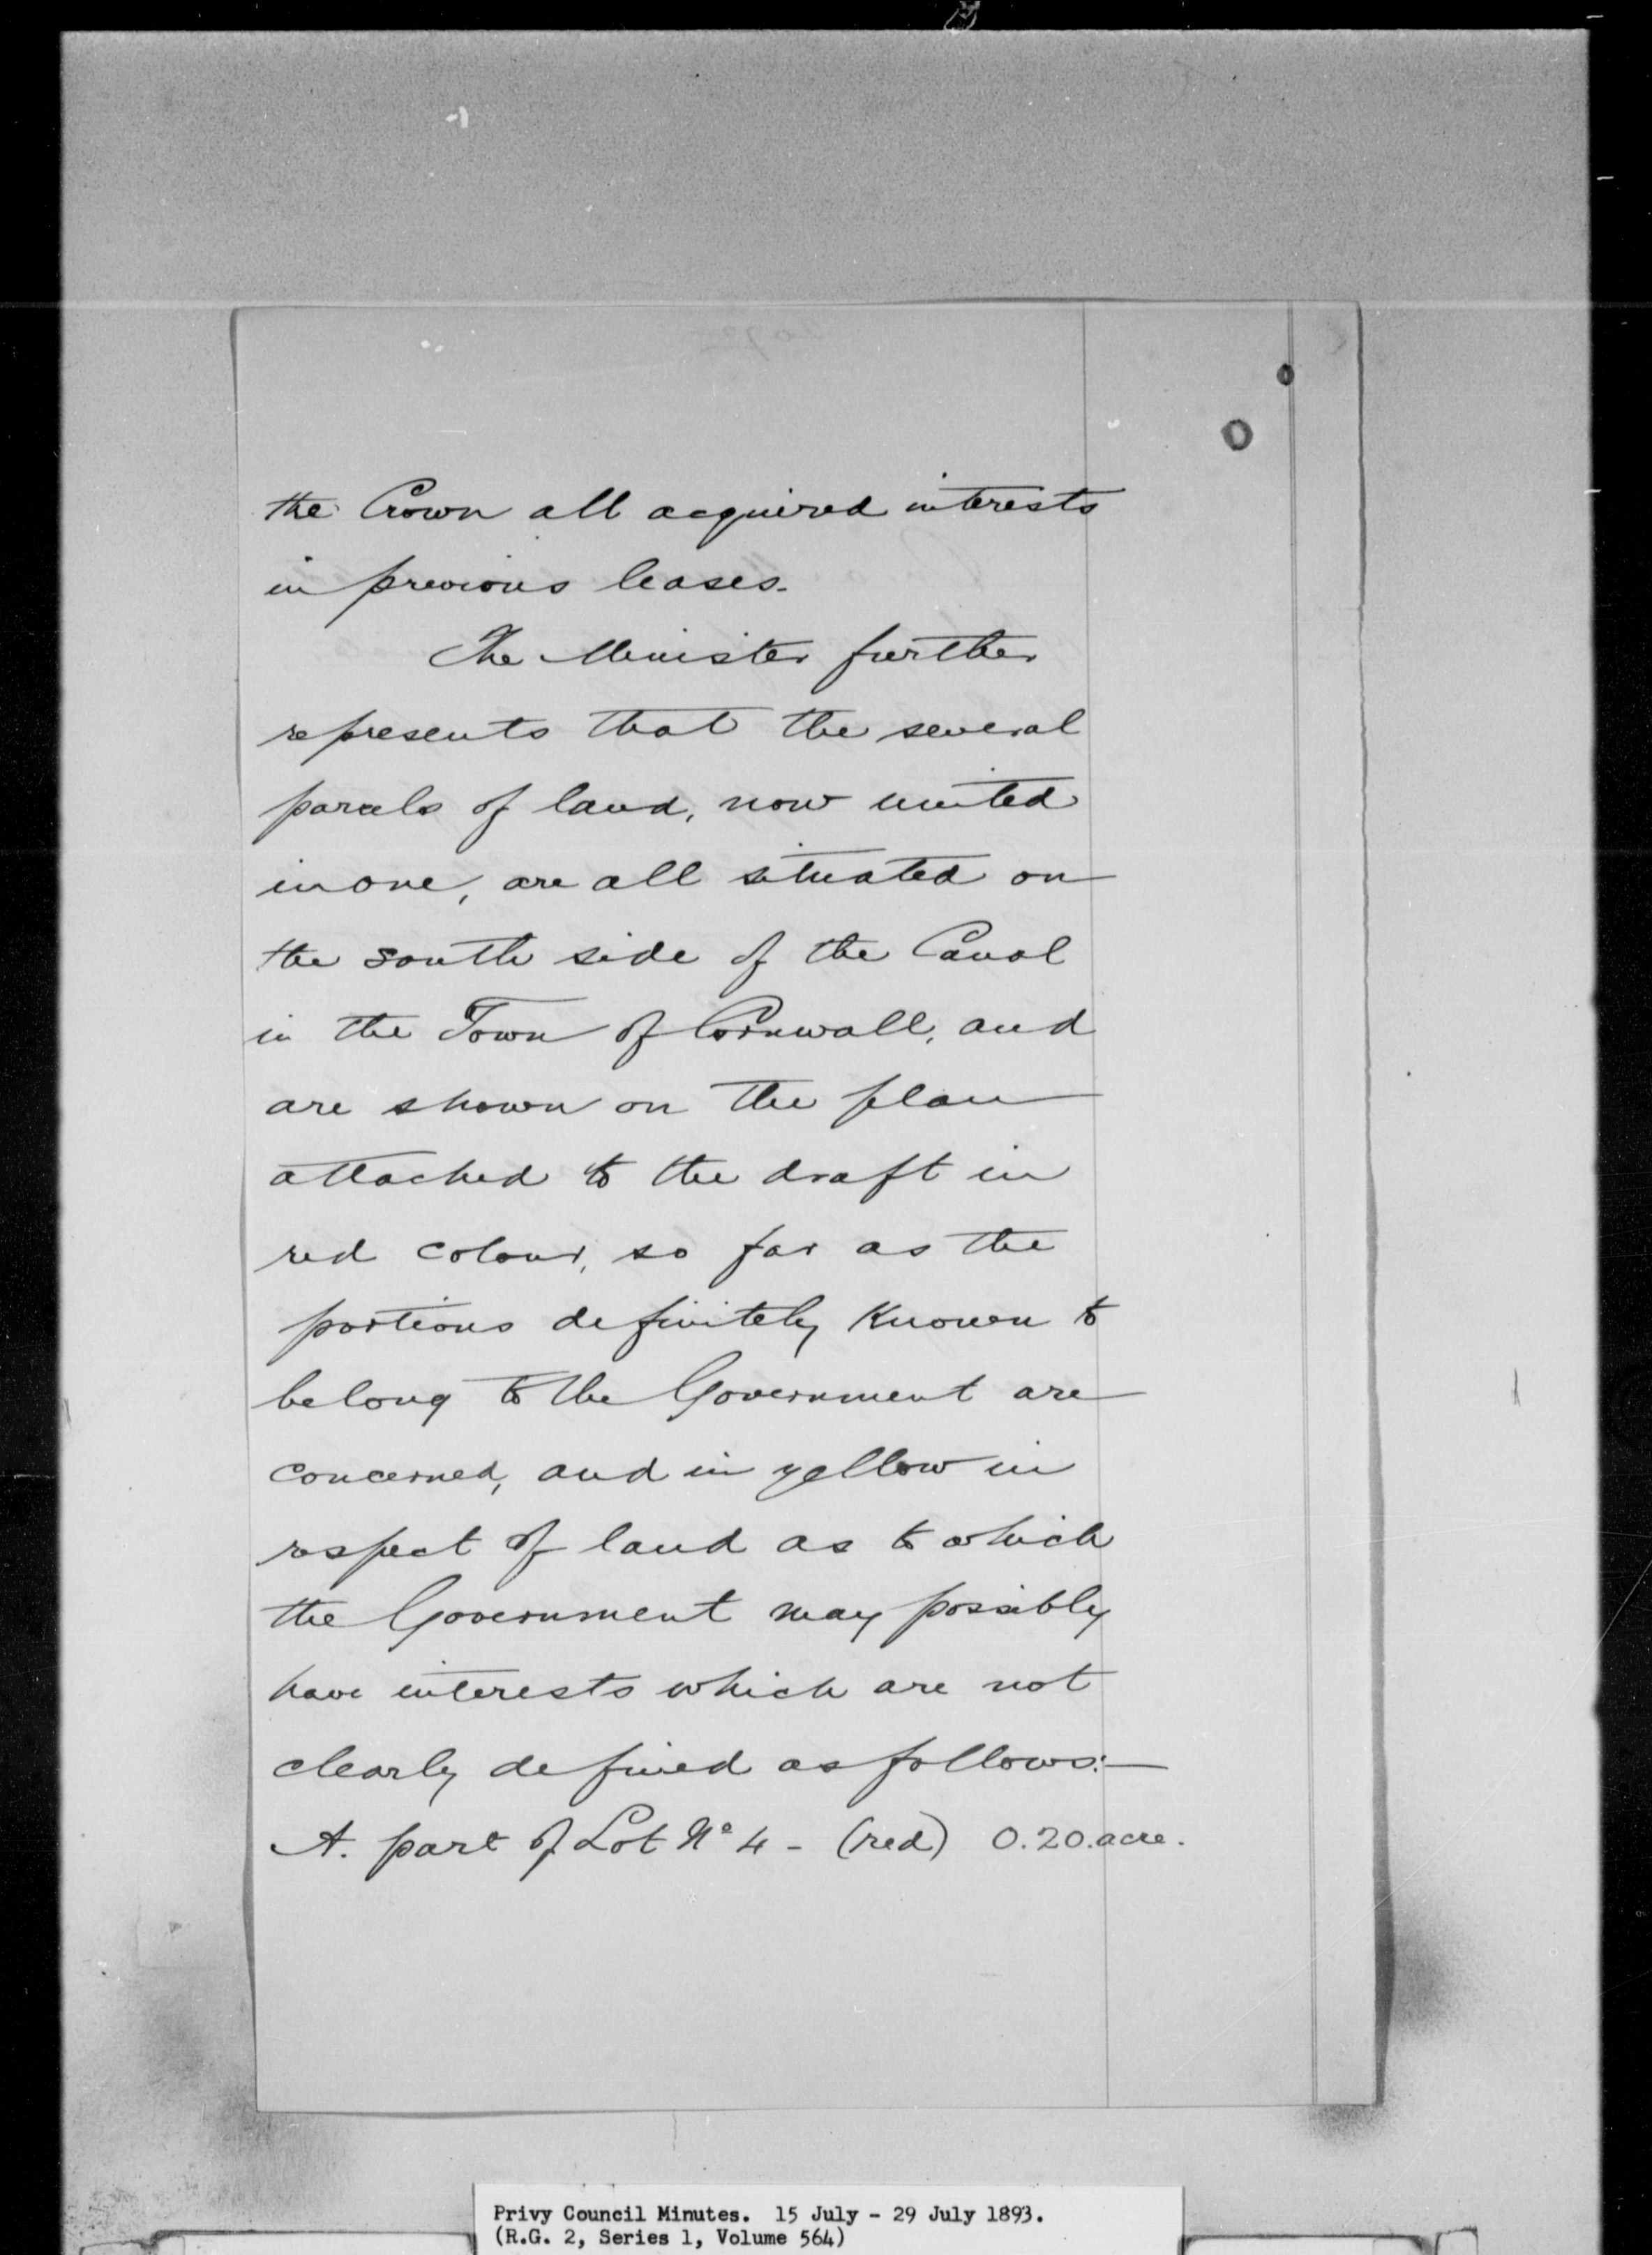 the Crown all acquired interests
in previous leases.
The Minister further
represents that the several
parcels of land, now united
in one, are all situated on
the south side of the Canal
in the Town of Cornwall, and
are shown on the plan
attached to the draft in
red colour, so far as the
portions definitely known to
belong to the Government are
concerned, and in yellow in
respect of land as to which
the Government may possibly
have interests which are not
clearly defined as follows:—
A. part of Lot No 4 - (red) 0.20. acre.
Privy Council Minutes. 15 July - 29 July 1893.
(R.G. 2, Series 1, Volume 564)